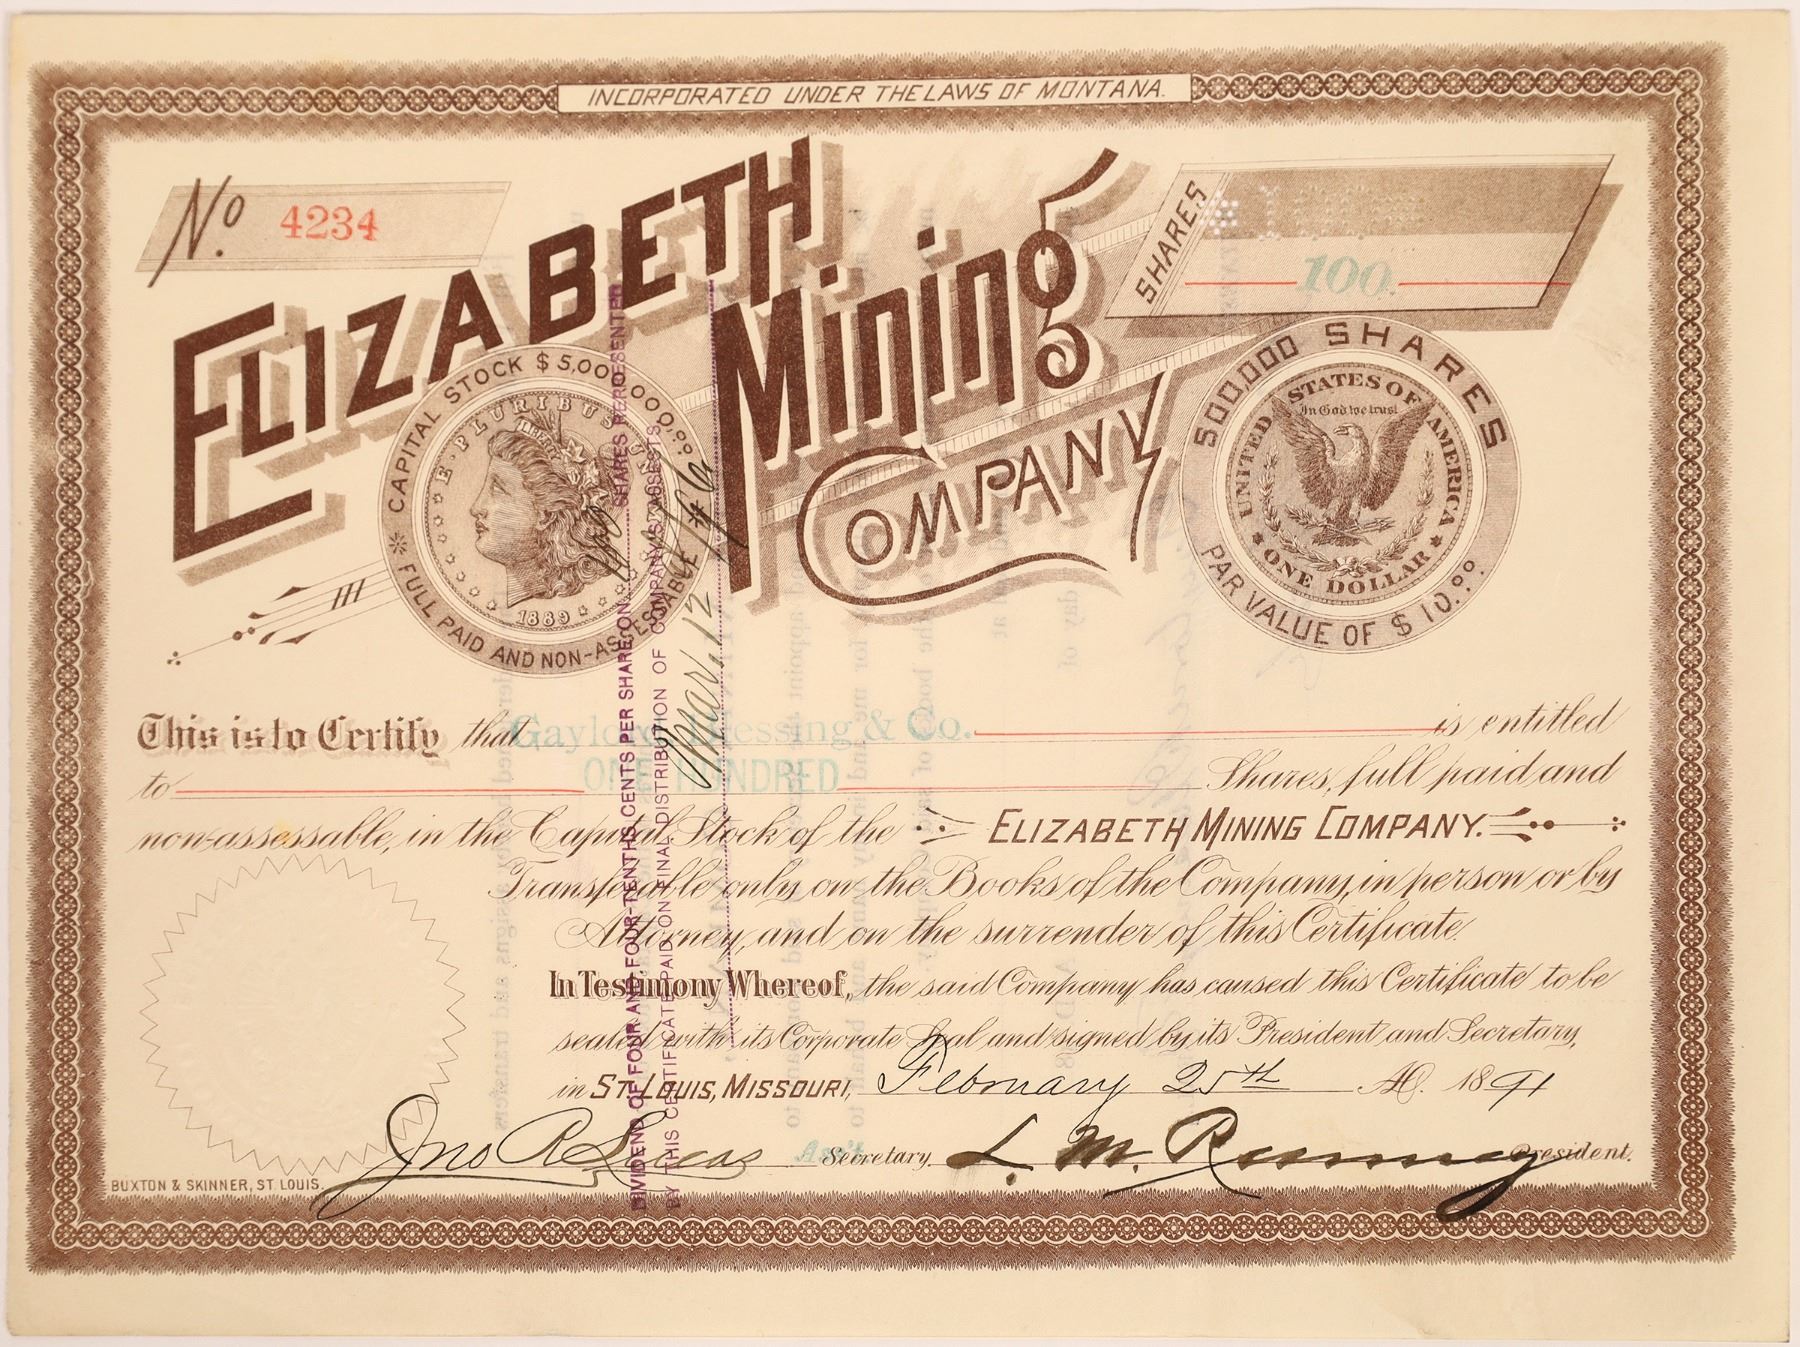 INCORPORATED UNDER THE LAWS OF MONTANA.
No. 4234
ELIZABETH
Mining
COMPANY
SHARES
100
CAPITAL STOCK $5,000,000.00
FULL PAID AND NON-ASSESSABLE
E·PLURIBUS·UNUM
LIBERTY
1889
500,000 SHARES
PAR VALUE OF $10.00
UNITED STATES OF AMERICA
In God we trust
ONE DOLLAR
This is to Certify that Gaylord, Blessing & Co. is entitled
to ONE HUNDRED Shares, full paid and
non-assessable, in the Capital Stock of the ELIZABETH MINING COMPANY.
Transferable only on the Books of the Company, in person or by
Attorney, and on the surrender of this Certificate.
In Testimony Whereof, the said Company has caused this Certificate to be
sealed with its Corporate Seal and signed by its President and Secretary,
in ST. LOUIS, MISSOURI, February 25th A.D. 1891
Jno R Lucas Ass't Secretary. L. M. Rumsey President.
BUXTON & SKINNER, ST. LOUIS.
DIVIDEND OF FOUR AND FOUR-TENTHS CENTS PER SHARE ON 100 SHARES REPRESENTED
BY THIS CERTIFICATE PAID ON FINAL DISTRIBUTION OF COMPANY'S ASSETS.
Mar. 12